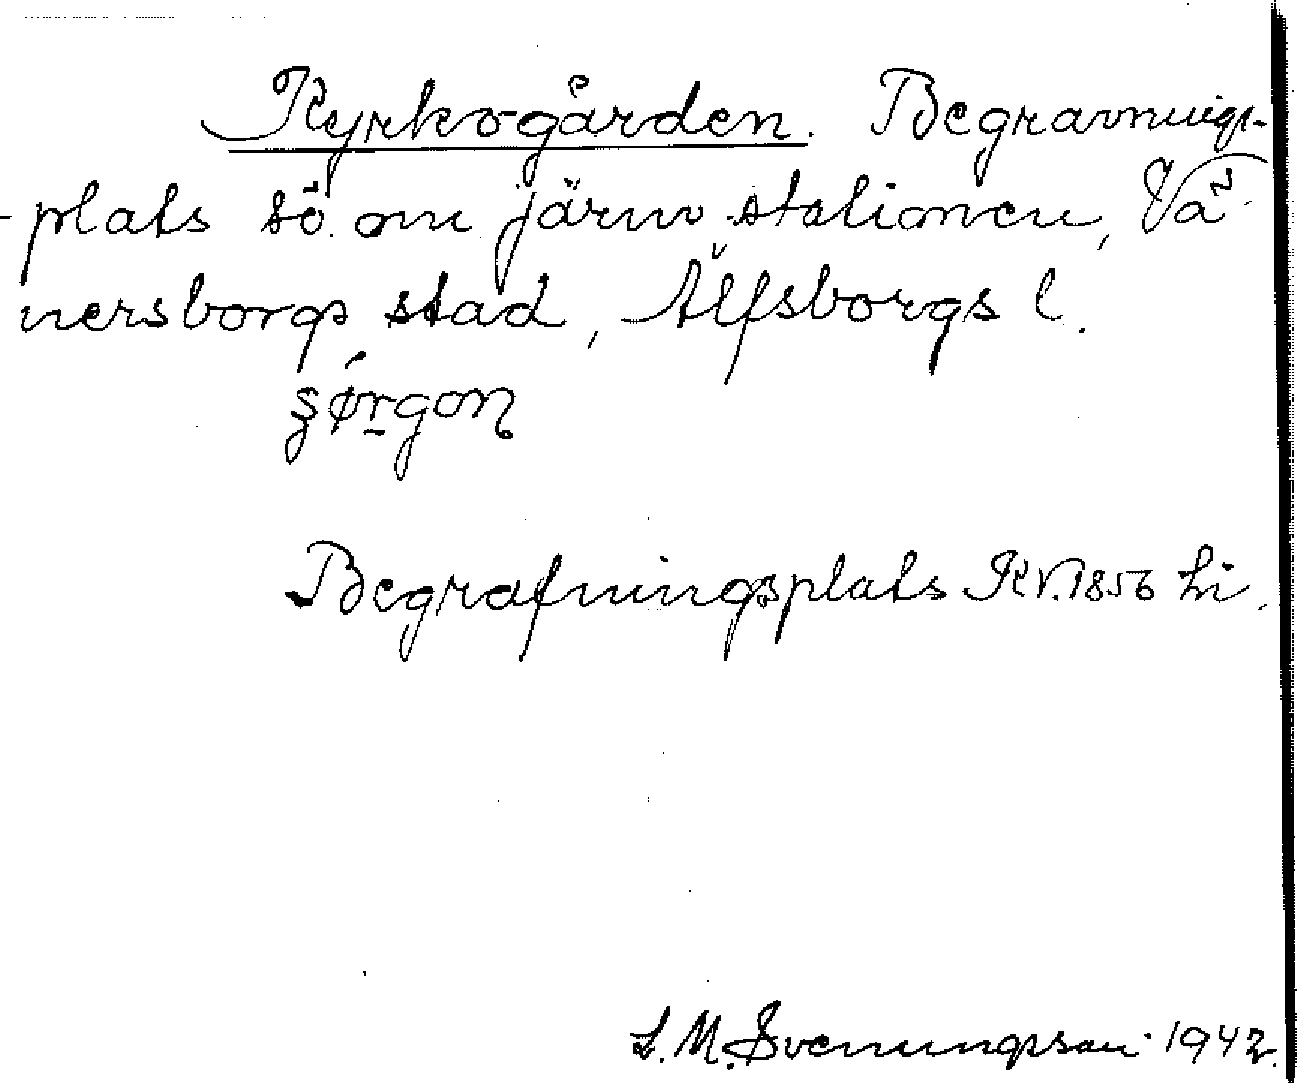 Kyrkogården. Begravnings-
-plats sö. om järnv. stationen, Vä-
nersborgs stad, Älfsborgs l.
ʂørgon
Begrafningsplats K V. 1856 Li.
L. M. Svenungsson 1942.